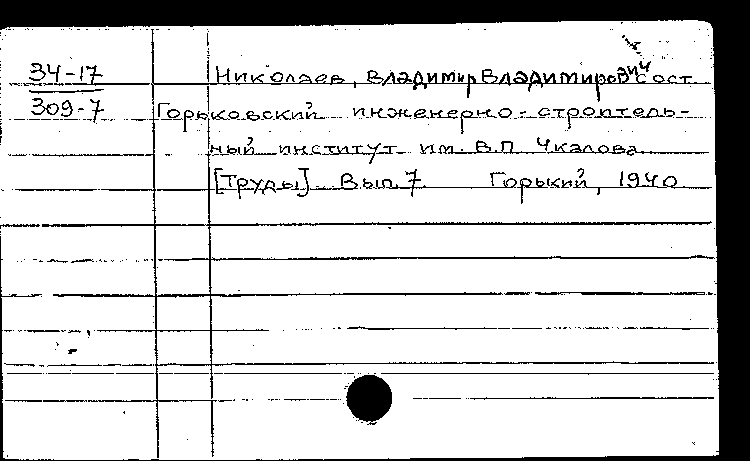 34-17 Николаев, Владимир Владимирович сост.
309-7 Горьковский инженерно-строитель-
ный институт им. В.П. Чкалова.
[Труды]. Вып. 7. Горький, 1940